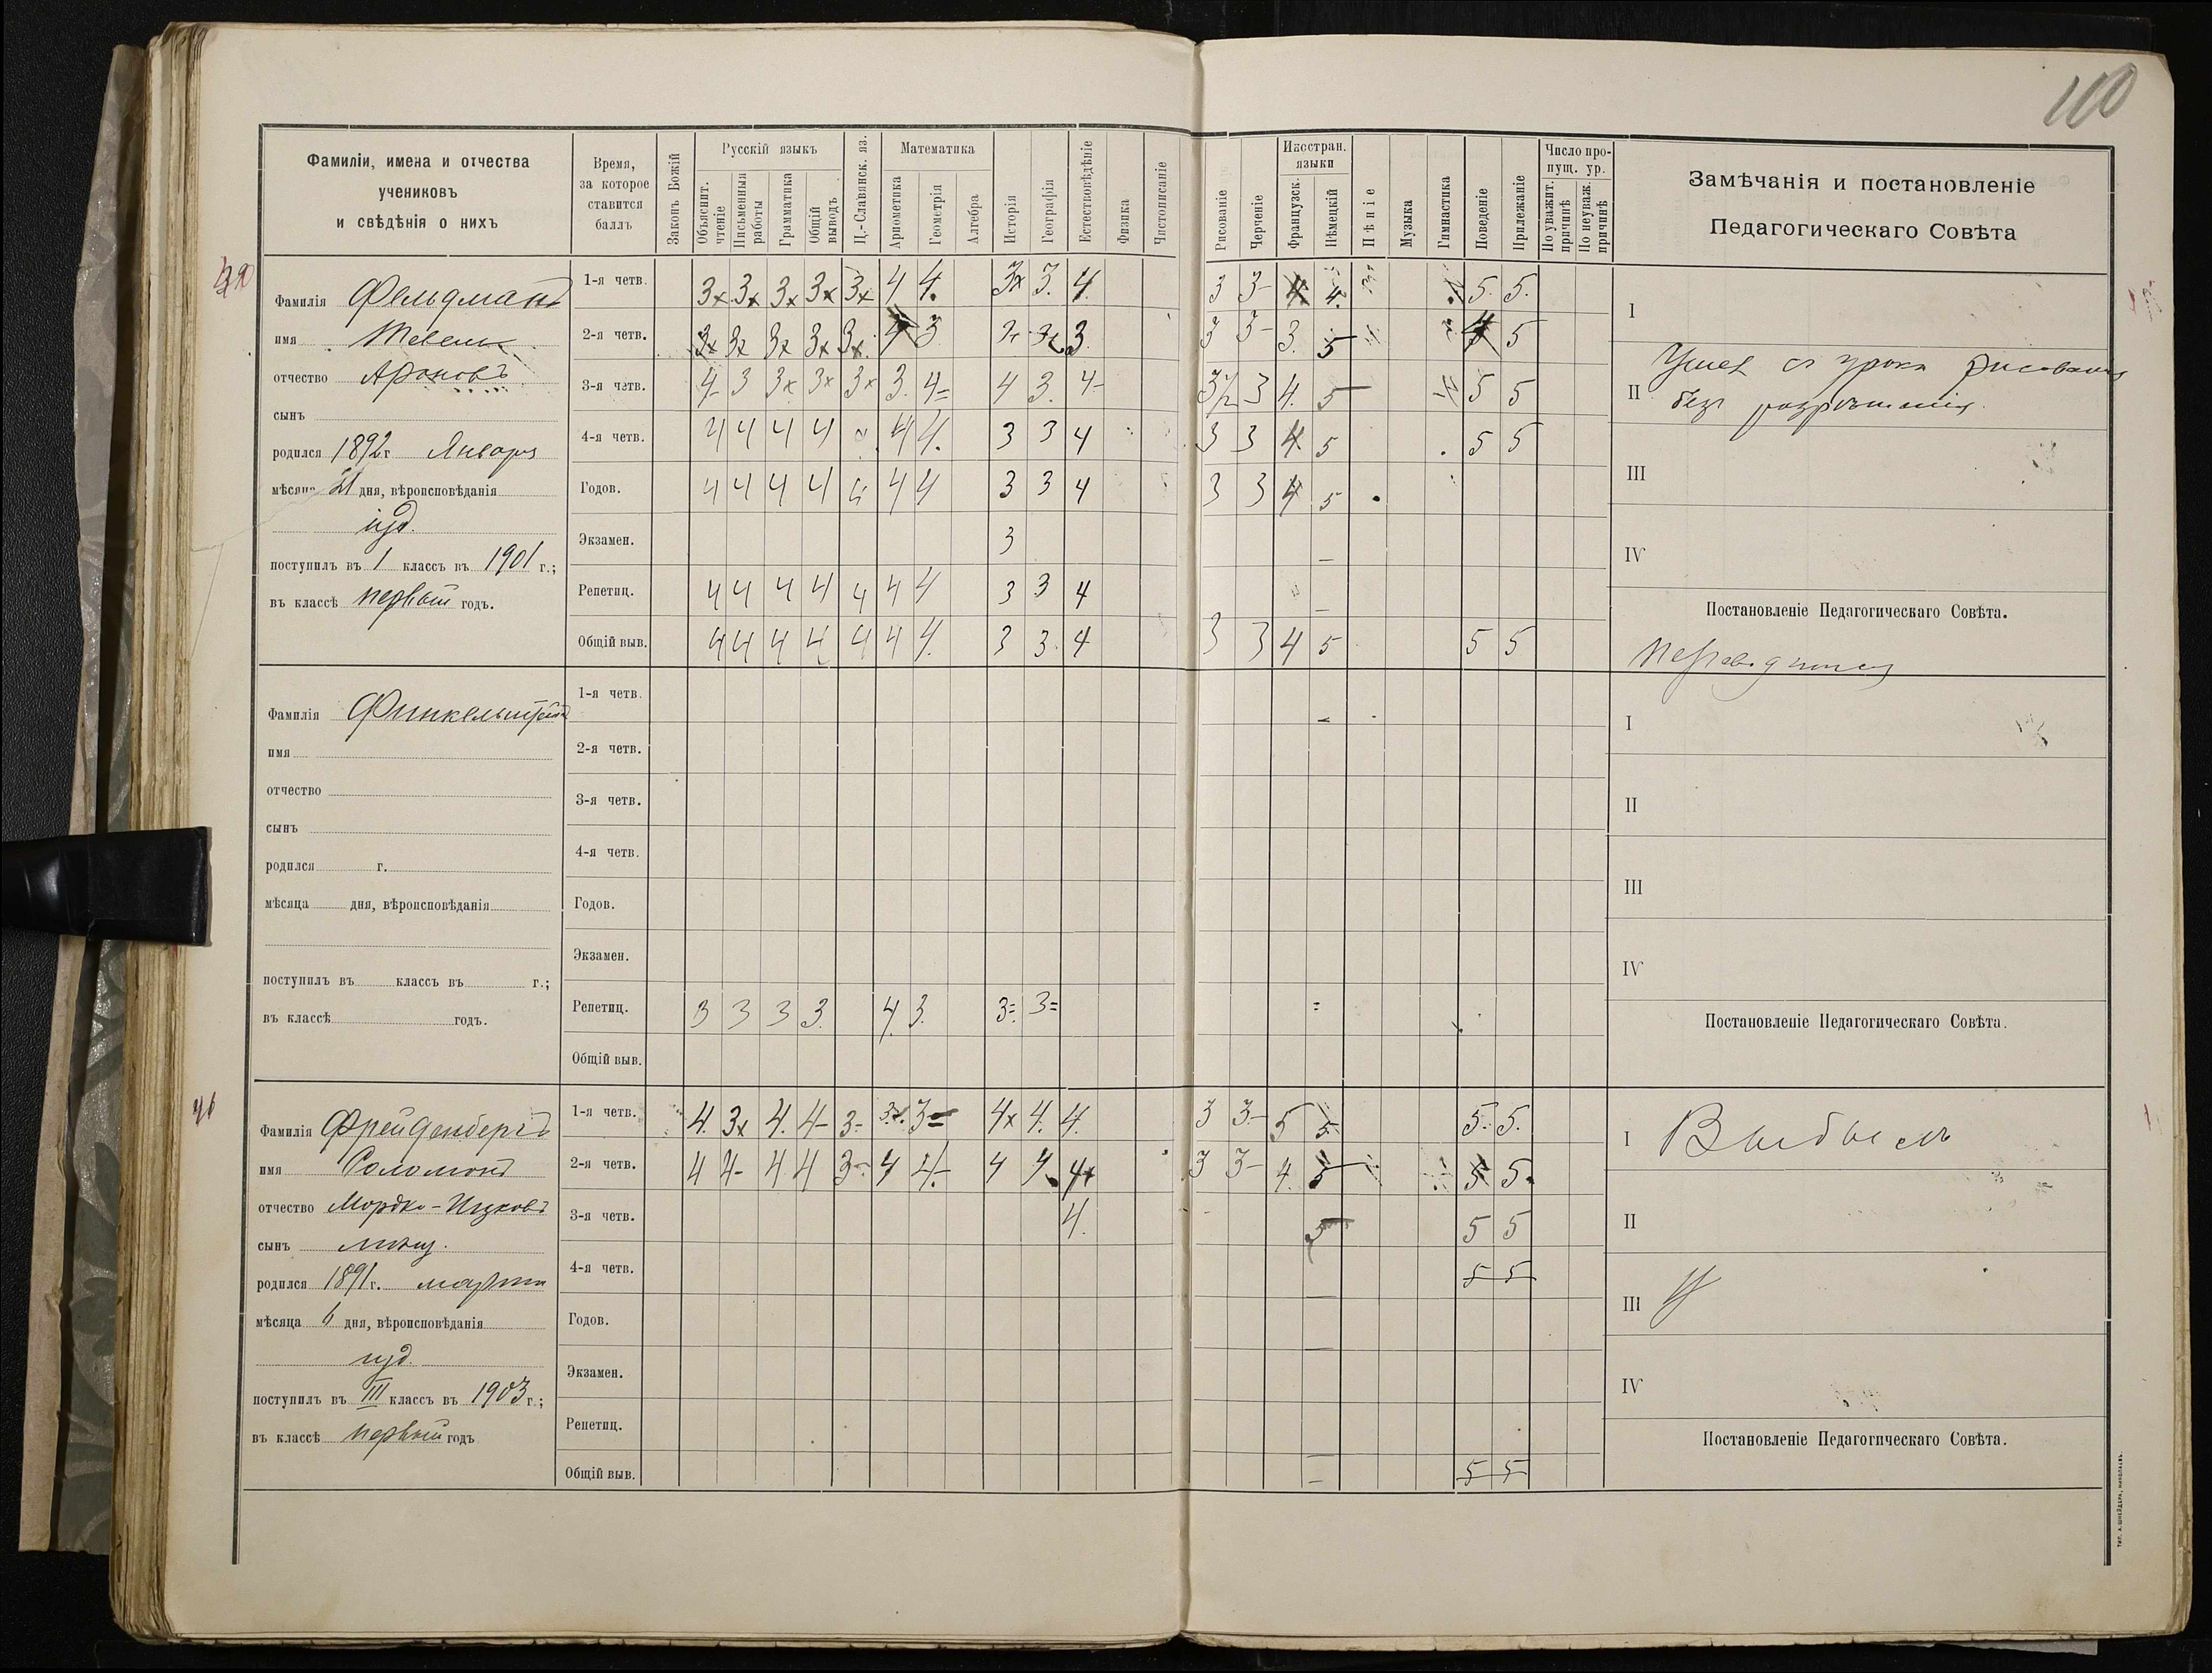 110
Фамиліи, имена и отчества
учениковъ
и свѣдѣнія о нихъ
Время,
за которое
ставится
баллъ
Законъ Божій
Русскій языкъ
Объяснит.
чтеніе
Письменныя
работы
Грамматика
Общій
выводъ
Ц.-Славянск. яз.
Математика
Ариѳметика
Геометрія
Алгебра
Исторія
Географія
Естествовѣдѣніе
Физика
Чистописаніе
Рисованіе
Черченіе
Иностран.
языки
Французск.
Нѣмецкій
Пѣніе
Музыка
Гимнастика
Поведеніе
Прилежаніе
Число про-
пущ. ур.
По уважит.
причинѣ
По неуваж.
причинѣ
Замѣчанія и постановленіе
Педагогическаго Совѣта
Фамилія Фельдманъ
имя Тевель
отчество Ароновъ
сынъ
родился 1892 г. Января
мѣсяца 21 дня, вѣроисповѣданія
іуд.
поступилъ въ 1 классъ въ 1901 г.;
въ классѣ первый годъ.
1-я четв. 3x 3x 3x 3x 3x 4 4. 3x 3. 4. 3 3- 4 4. 5. 5.
2-я четв. 3x 3x 3x 3x 3x 4 3 3. 3 3- 3. 5 4 5
3-я четв. 4- 3 3x 3x 3x 3. 4= 4 3. 4- 3½ 3 4. 5 5 5
4-я четв. 4 4 4 4 4 4. 3 3 4 3 3 4 5 5 5
Годов. 4 4 4 4 4 4 4 3 3 4 3 3 4 5
Экзамен. 3
Репетиц. 4 4 4 4 4 4 4 3 3 4
Общій выв. 4 4 4 4 4 4 4. 3 3. 4 3 3 4 5 5 5
I
II Ушелъ съ урока рисованія
безъ разрѣшенія.
III
IV
Постановленіе Педагогическаго Совѣта.
Переводится
Фамилія Финкельштейнъ
имя
отчество
сынъ
родился г.
мѣсяца дня, вѣроисповѣданія
поступилъ въ классъ въ г.;
въ классѣ годъ.
1-я четв.
2-я четв.
3-я четв.
4-я четв.
Годов.
Экзамен.
Репетиц. 3 3 3 3. 4. 3. 3= 3=
Общій выв.
I
II
III
IV
Постановленіе Педагогическаго Совѣта.
Фамилія Фрейденбергъ
имя Соломонъ
отчество Мордко-Ицковъ
сынъ мѣщ.
родился 1891 г. марта
мѣсяца 6 дня, вѣроисповѣданія
іуд.
поступилъ въ III классъ въ 1903 г.;
въ классѣ первый годъ
1-я четв. 4. 3x 4. 4- 3- 3= 4x 4. 4. 3 3- 5 5- 5. 5.
2-я четв. 4 4- 4 4 3- 4 4- 4 4. 4x 3 3- 4. 5 5 5.
3-я четв. 4. 5 5 5
4-я четв. 5 5
Годов.
Экзамен.
Репетиц.
Общій выв. 5 5
I Выбылъ
II
III
IV
Постановленіе Педагогическаго Совѣта.
ТИП. А. ШНЕЙДЕРА, НИКОЛАЕВЪ.